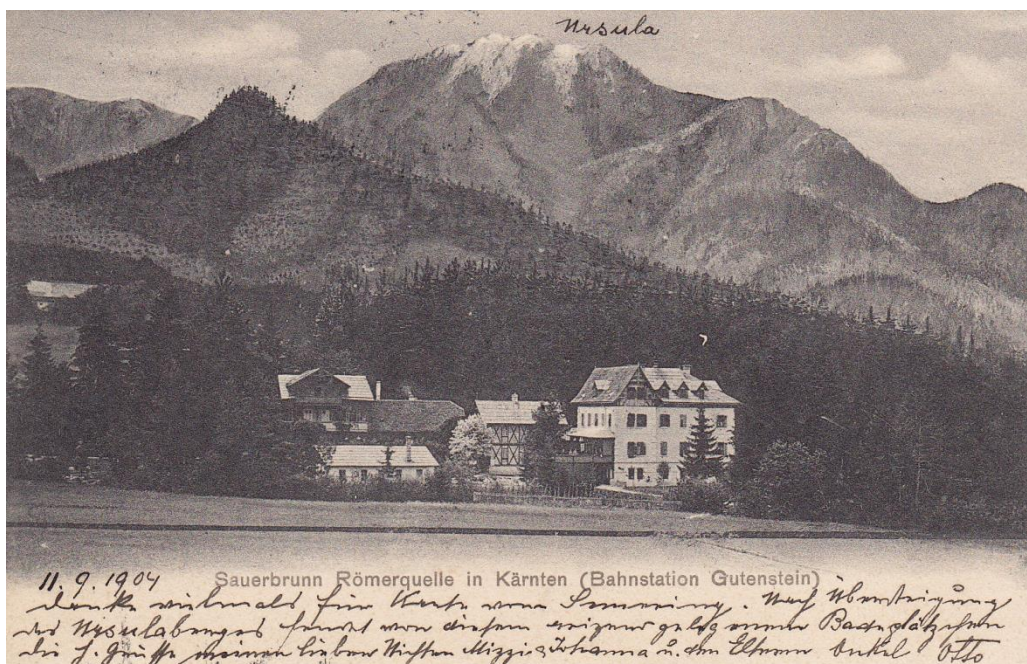 Ursula
11.9.1904
Sauerbrunn Römerquelle in Kärnten (Bahnstation Gutenstein)
danke vielmals für Karte vom Semering. Nach Übersteigung
des Ursulaberges sendet von diesem reizend gelegenen Badeplätzchen
die h. Grüsse meinen lieben Nichten Mizzi & Johanna u. den Eltern Onkel Otto